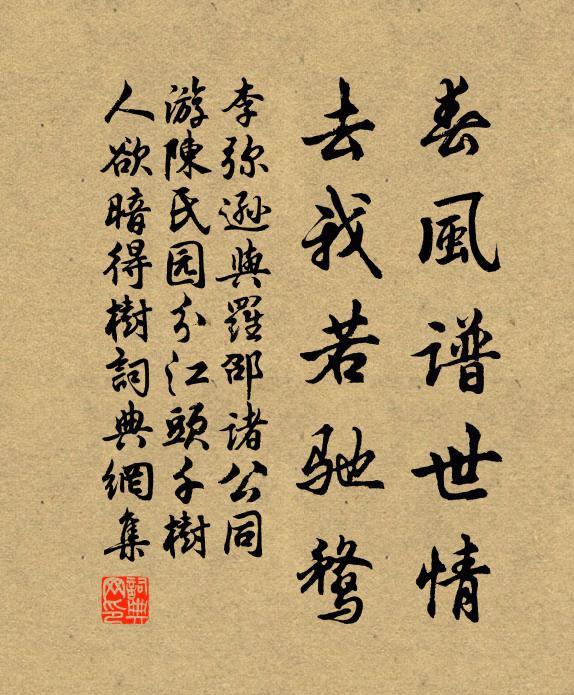 春風谱世情
去我若馳騖
李弥遜與羅邵諸公同
游陳氏园分江頭千樹
人欲暗得樹詞典網集
詞典网印